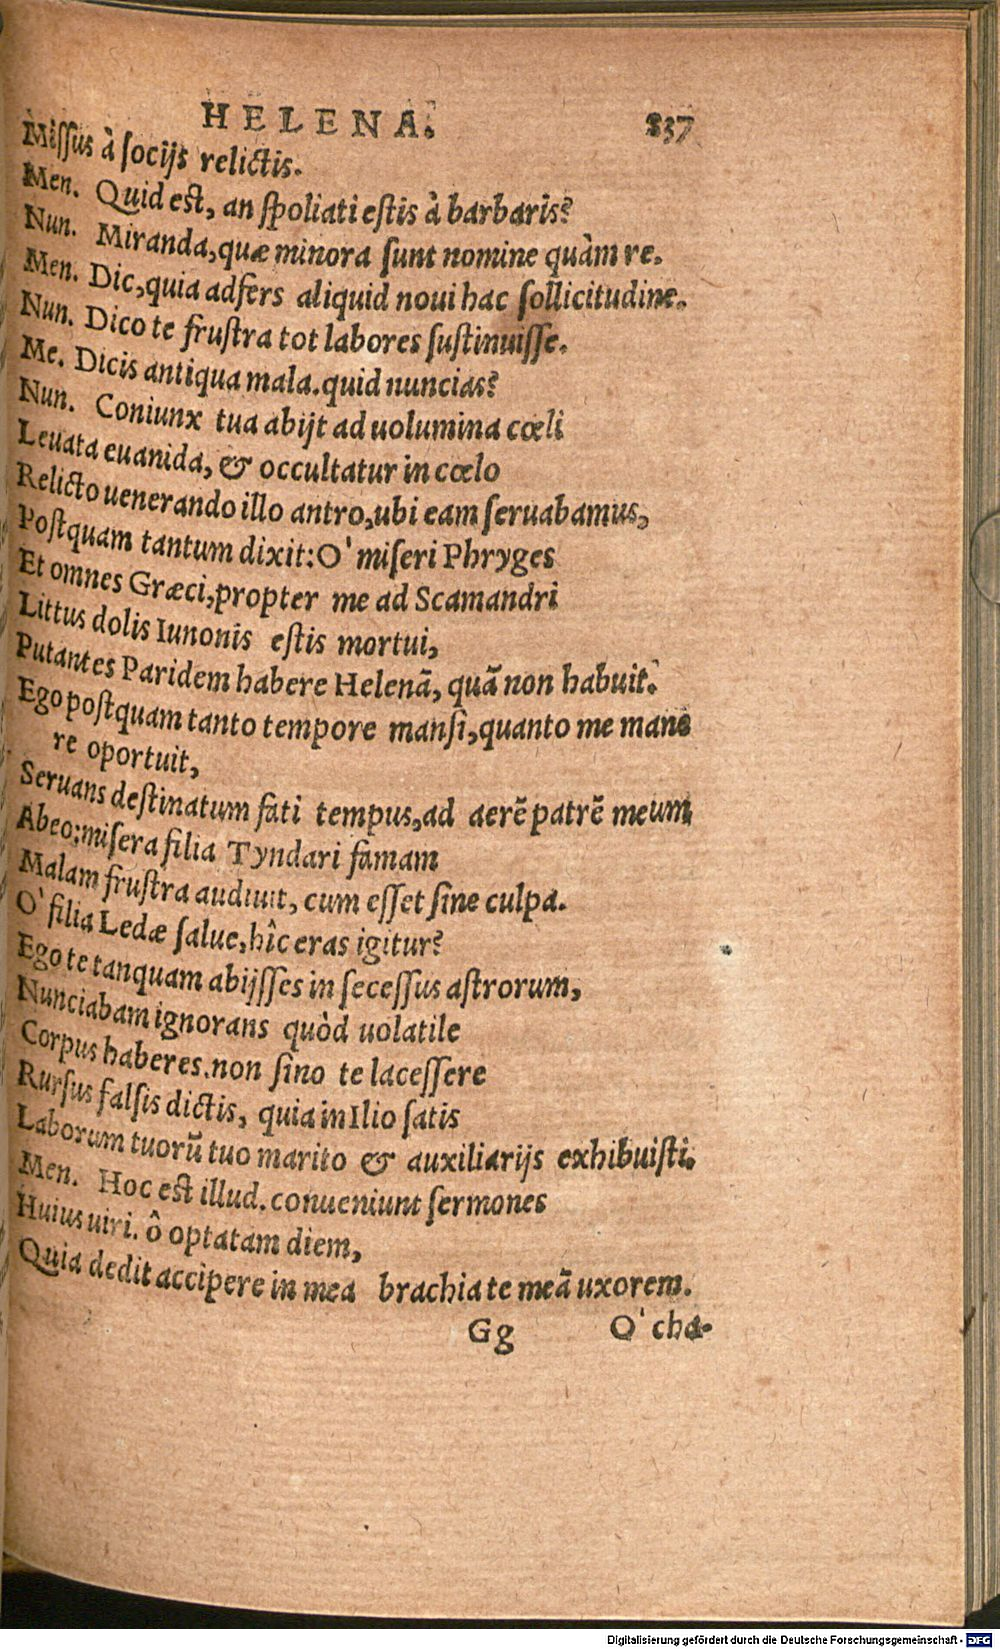 HELENA. 837
Missus à socijs relictis.
Men. Quid est, an spoliati estis à barbaris?
Nun. Miranda, quæ minora sunt nomine quàm re.
Men. Dic, quia adfers aliquid noui hac sollicitudine.
Nun. Dico te frustra tot labores sustinuisse.
Me. Dicis antiqua mala. quid nuncias?
Nun. Coniunx tua abijt ad uolumina cœli
Leuata euanida, & occultatur in cœlo
Relicto uenerando illo antro, ubi eam seruabamus,
Postquam tantum dixit: O' miseri Phryges
Et omnes Græci, propter me ad Scamandri
Littus dolis Iunonis estis mortui,
Putantes Paridem habere Helenã, quã non habuit.
Ego postquam tanto tempore mansi, quanto me mane
re oportuit,
Seruans destinatum fati tempus, ad aerẽ patrẽ meum
Abeo: misera filia Tyndari famam
Malam frustra audiuit, cum esset sine culpa.
O' filia Ledæ salue, hîc eras igitur?
Ego te tanquam abijsses in secessus astrorum,
Nunciabam ignorans quòd uolatile
Corpus haberes. non sino te lacessere
Rursus falsis dictis, quia in Ilio satis
Laborum tuorũ tuo marito & auxiliarijs exhibuisti.
Men. Hoc est illud. conueniunt sermones
Huius uiri. ô optatam diem,
Quia dedit accipere in mea brachia te meã uxorem.
Gg O' cha-
Digitalisierung gefördert durch die Deutsche Forschungsgemeinschaft - DFG